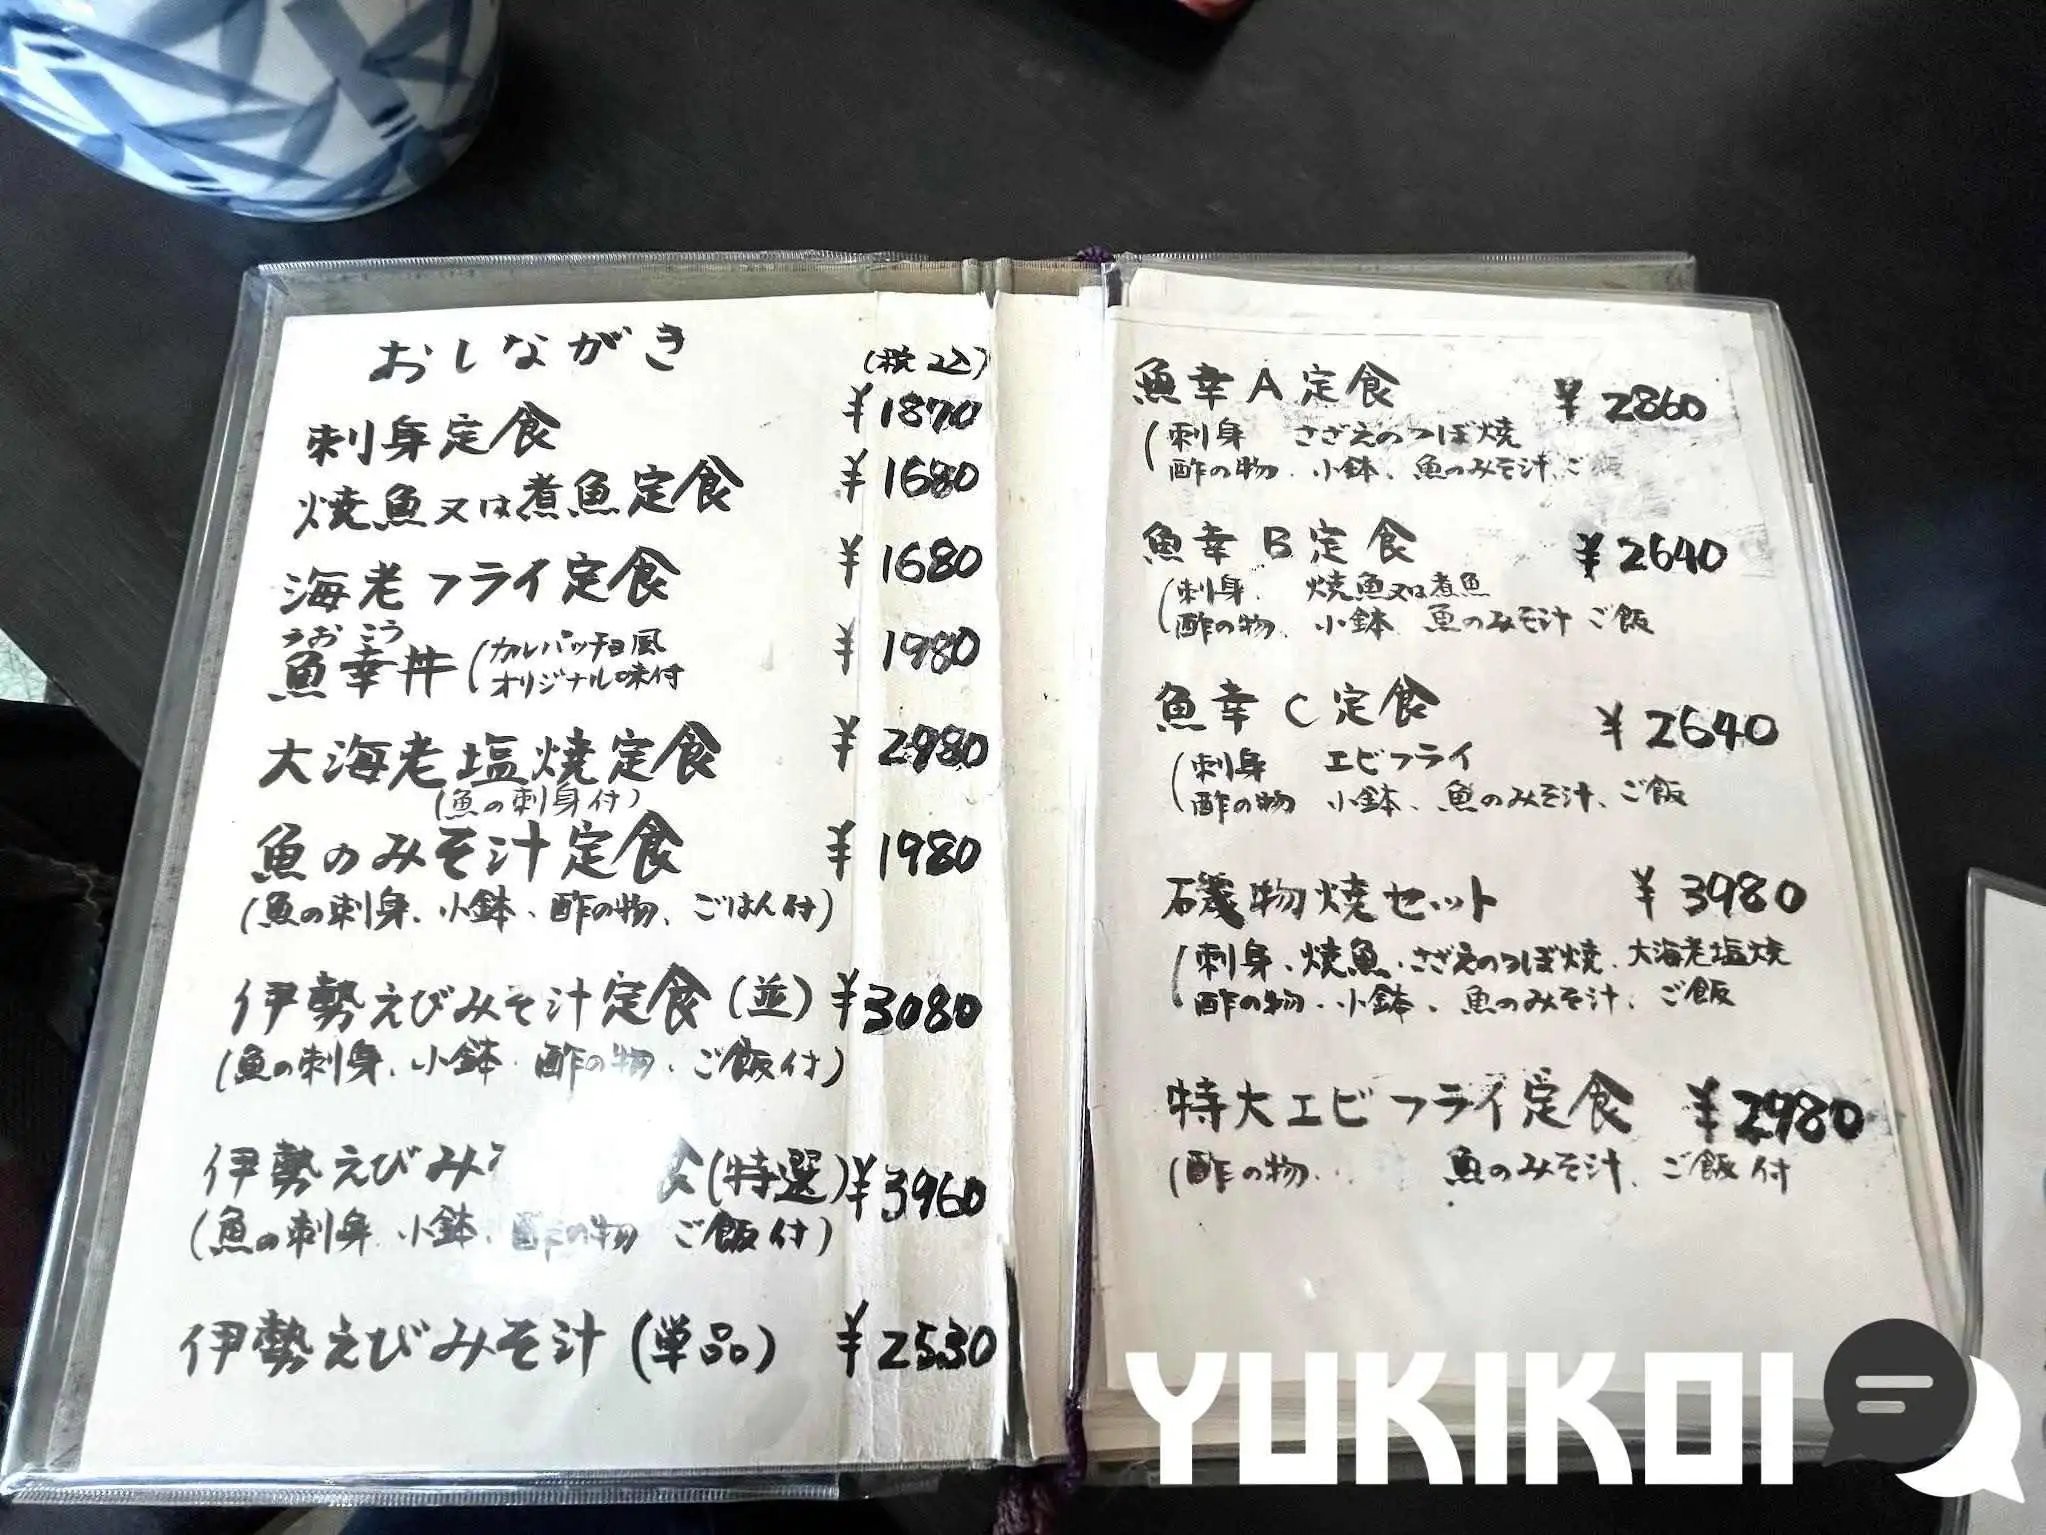 おしながき
(税込)
刺身定食 ¥1870
焼魚又は煮魚定食 ¥1680
海老フライ定食 ¥1680
うおこう
魚幸丼 (カルパッチョ風 ¥1980
オリジナル味付
大海老塩焼定食 ¥2980
(魚の刺身付)
魚のみそ汁定食 ¥1980
(魚の刺身、小鉢、酢の物、ごはん付)
伊勢えびみそ汁定食(並) ¥3080
(魚の刺身、小鉢、酢の物、ご飯付)
伊勢えびみ 食(特選) ¥3960
(魚の刺身 小鉢、酢の物 ご飯付)
伊勢えびみそ汁(単品) ¥2530
魚幸A定食 ¥2860
(刺身 さざえのつぼ焼
酢の物、小鉢、魚のみそ汁、ご飯
魚幸B定食 ¥2640
(刺身、焼魚又は煮魚
酢の物、小鉢 魚のみそ汁 ご飯
魚幸C定食 ¥2640
(刺身 エビフライ
酢の物 小鉢、魚のみそ汁、ご飯
磯物焼セット ¥3980
(刺身、焼魚、さざえのつぼ焼、大海老塩焼
酢の物、小鉢、魚のみそ汁、ご飯
特大エビフライ定食 ¥2980
(酢の物、 魚のみそ汁、ご飯付
YUKIKOI